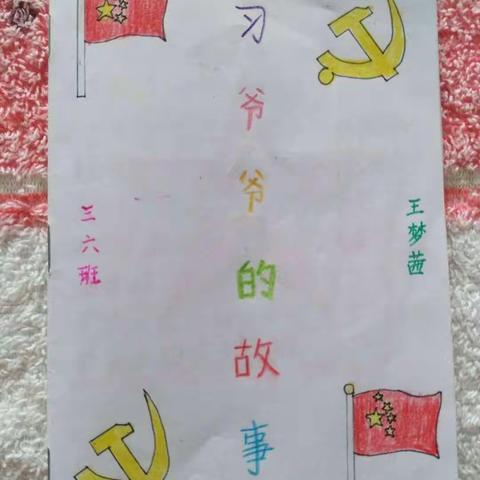 习爷爷的故事
三六班
王梦茜